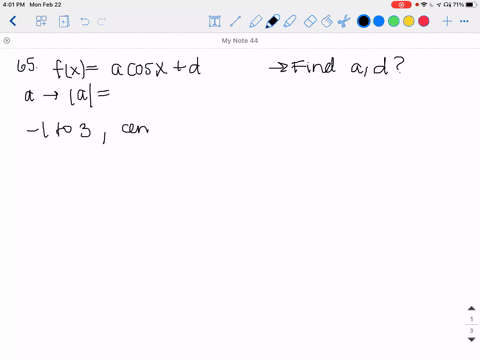 4:01 PM Mon Feb 22
71%
My Note 44
65. f(x) = a cos x + d → Find a, d?
a → |a| =
-1 to 3, cen
1
3